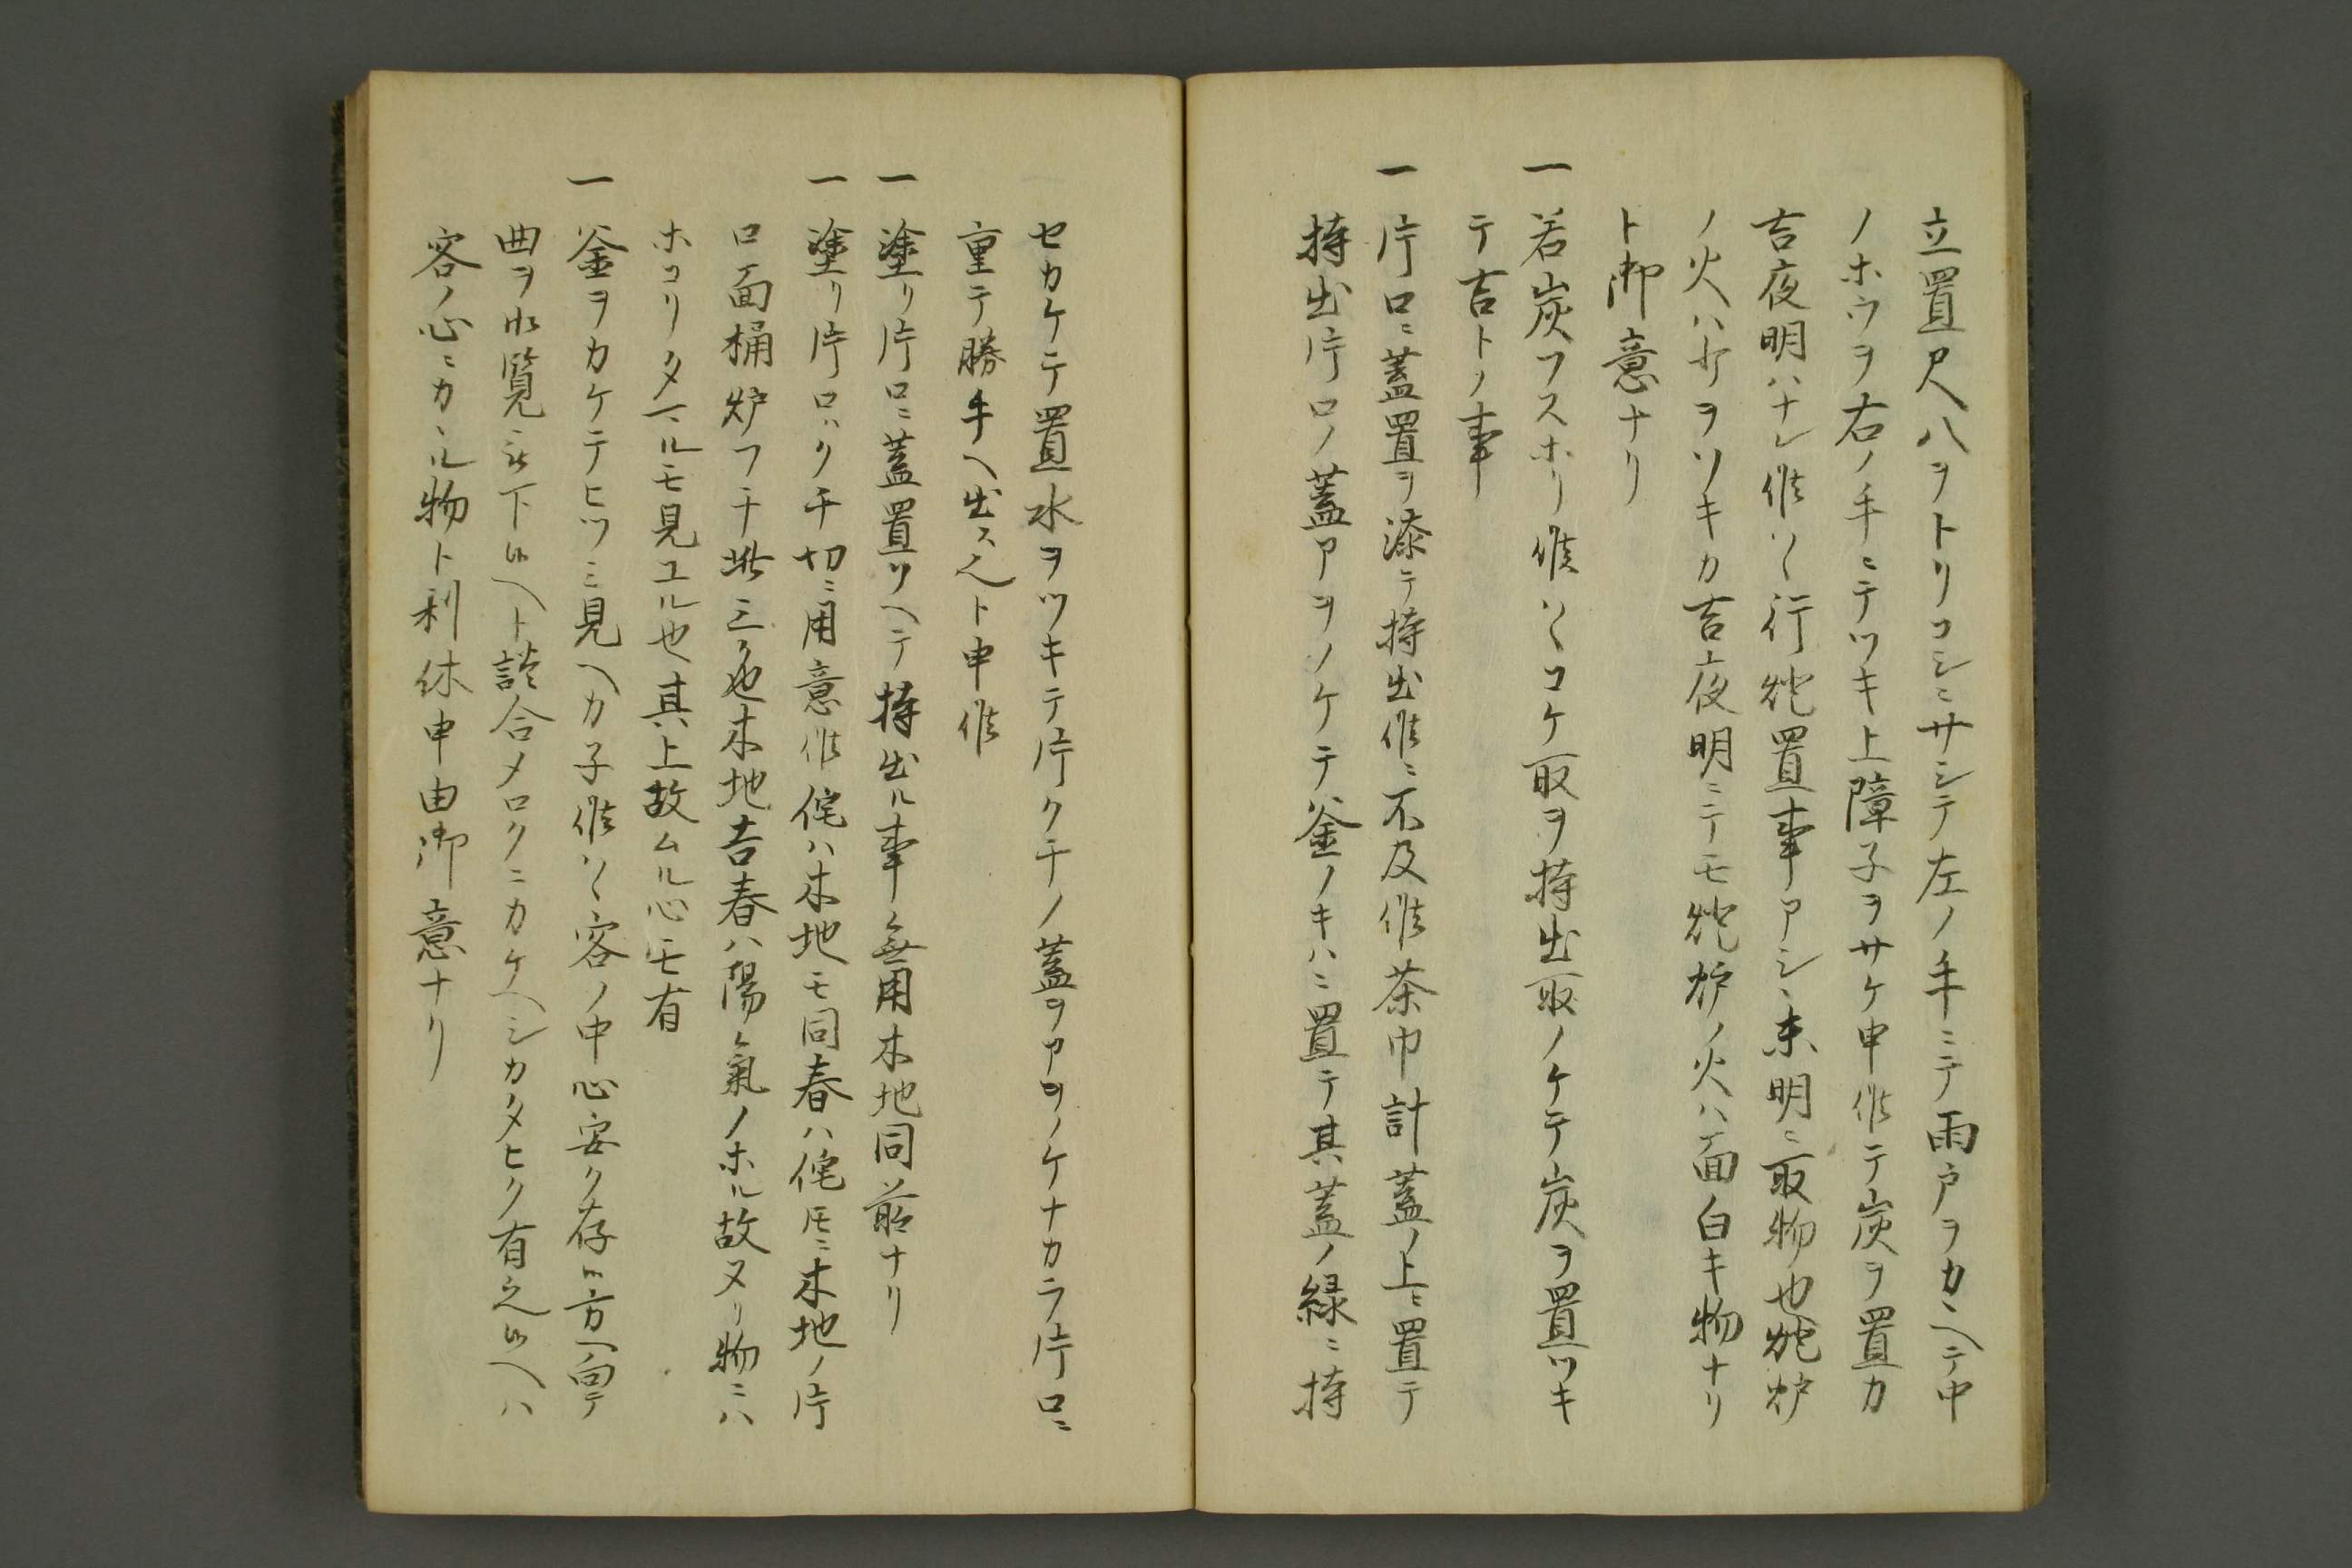 立置尺八ヲトリコシニサシテ左ノ手ニテ雨戸ヲカヽヘテ中
ノホウヲ右ノ手ニテツキ上障子ヲサケ申候テ炭ヲ置カ
吉夜明ハナレ候ハヽ行炉置事アシヽ未明ニ取物也炉
ノ火ハサヲツキカ吉夜明ニテモ炉ノ火ハ面白キ物ナリ
ト御意ナリ
一 若炭フスホリ候ハヽコケ取ヲ持出取ノケテ炭ヲ置ツキ
テ吉トノ事
一 片口ニ蓋置ヲ添テ持出候ニ不及候茶巾計蓋ノ上ニ置テ
持出片口ノ蓋アヲノケテ釜ノキハニ置テ其蓋ノ縁ニ持
セカケテ置水ヲツキテ片クチノ蓋ヲアヲノケナカラ片口ニ
重テ勝手ヘ出スヘシト申候
一 塗リ片口ニ蓋置ソヘテ持出ル事ハ無用木地同前ナリ
一 塗リ片口ハクチ切ニ用意候侘ハ木地モ同春ハ侘トモニ木地ノ片
口面桶炉フチ此三ケ也木地吉春ハ陽気ノホル故ヌリ物ニハ
ホコリタマルモ見ユル也其上故ムル心モ有
一 釜ヲカケテヒツミ見ヘカネ候ハヽ客ノ中心安ク存候方ヘ向テ
曲ヲ御覧被下候ヘト談合メロクニカケヘシカタヒク有之候ヘハ
客ノ心ニカヽル物ト利休申由御意ナリ